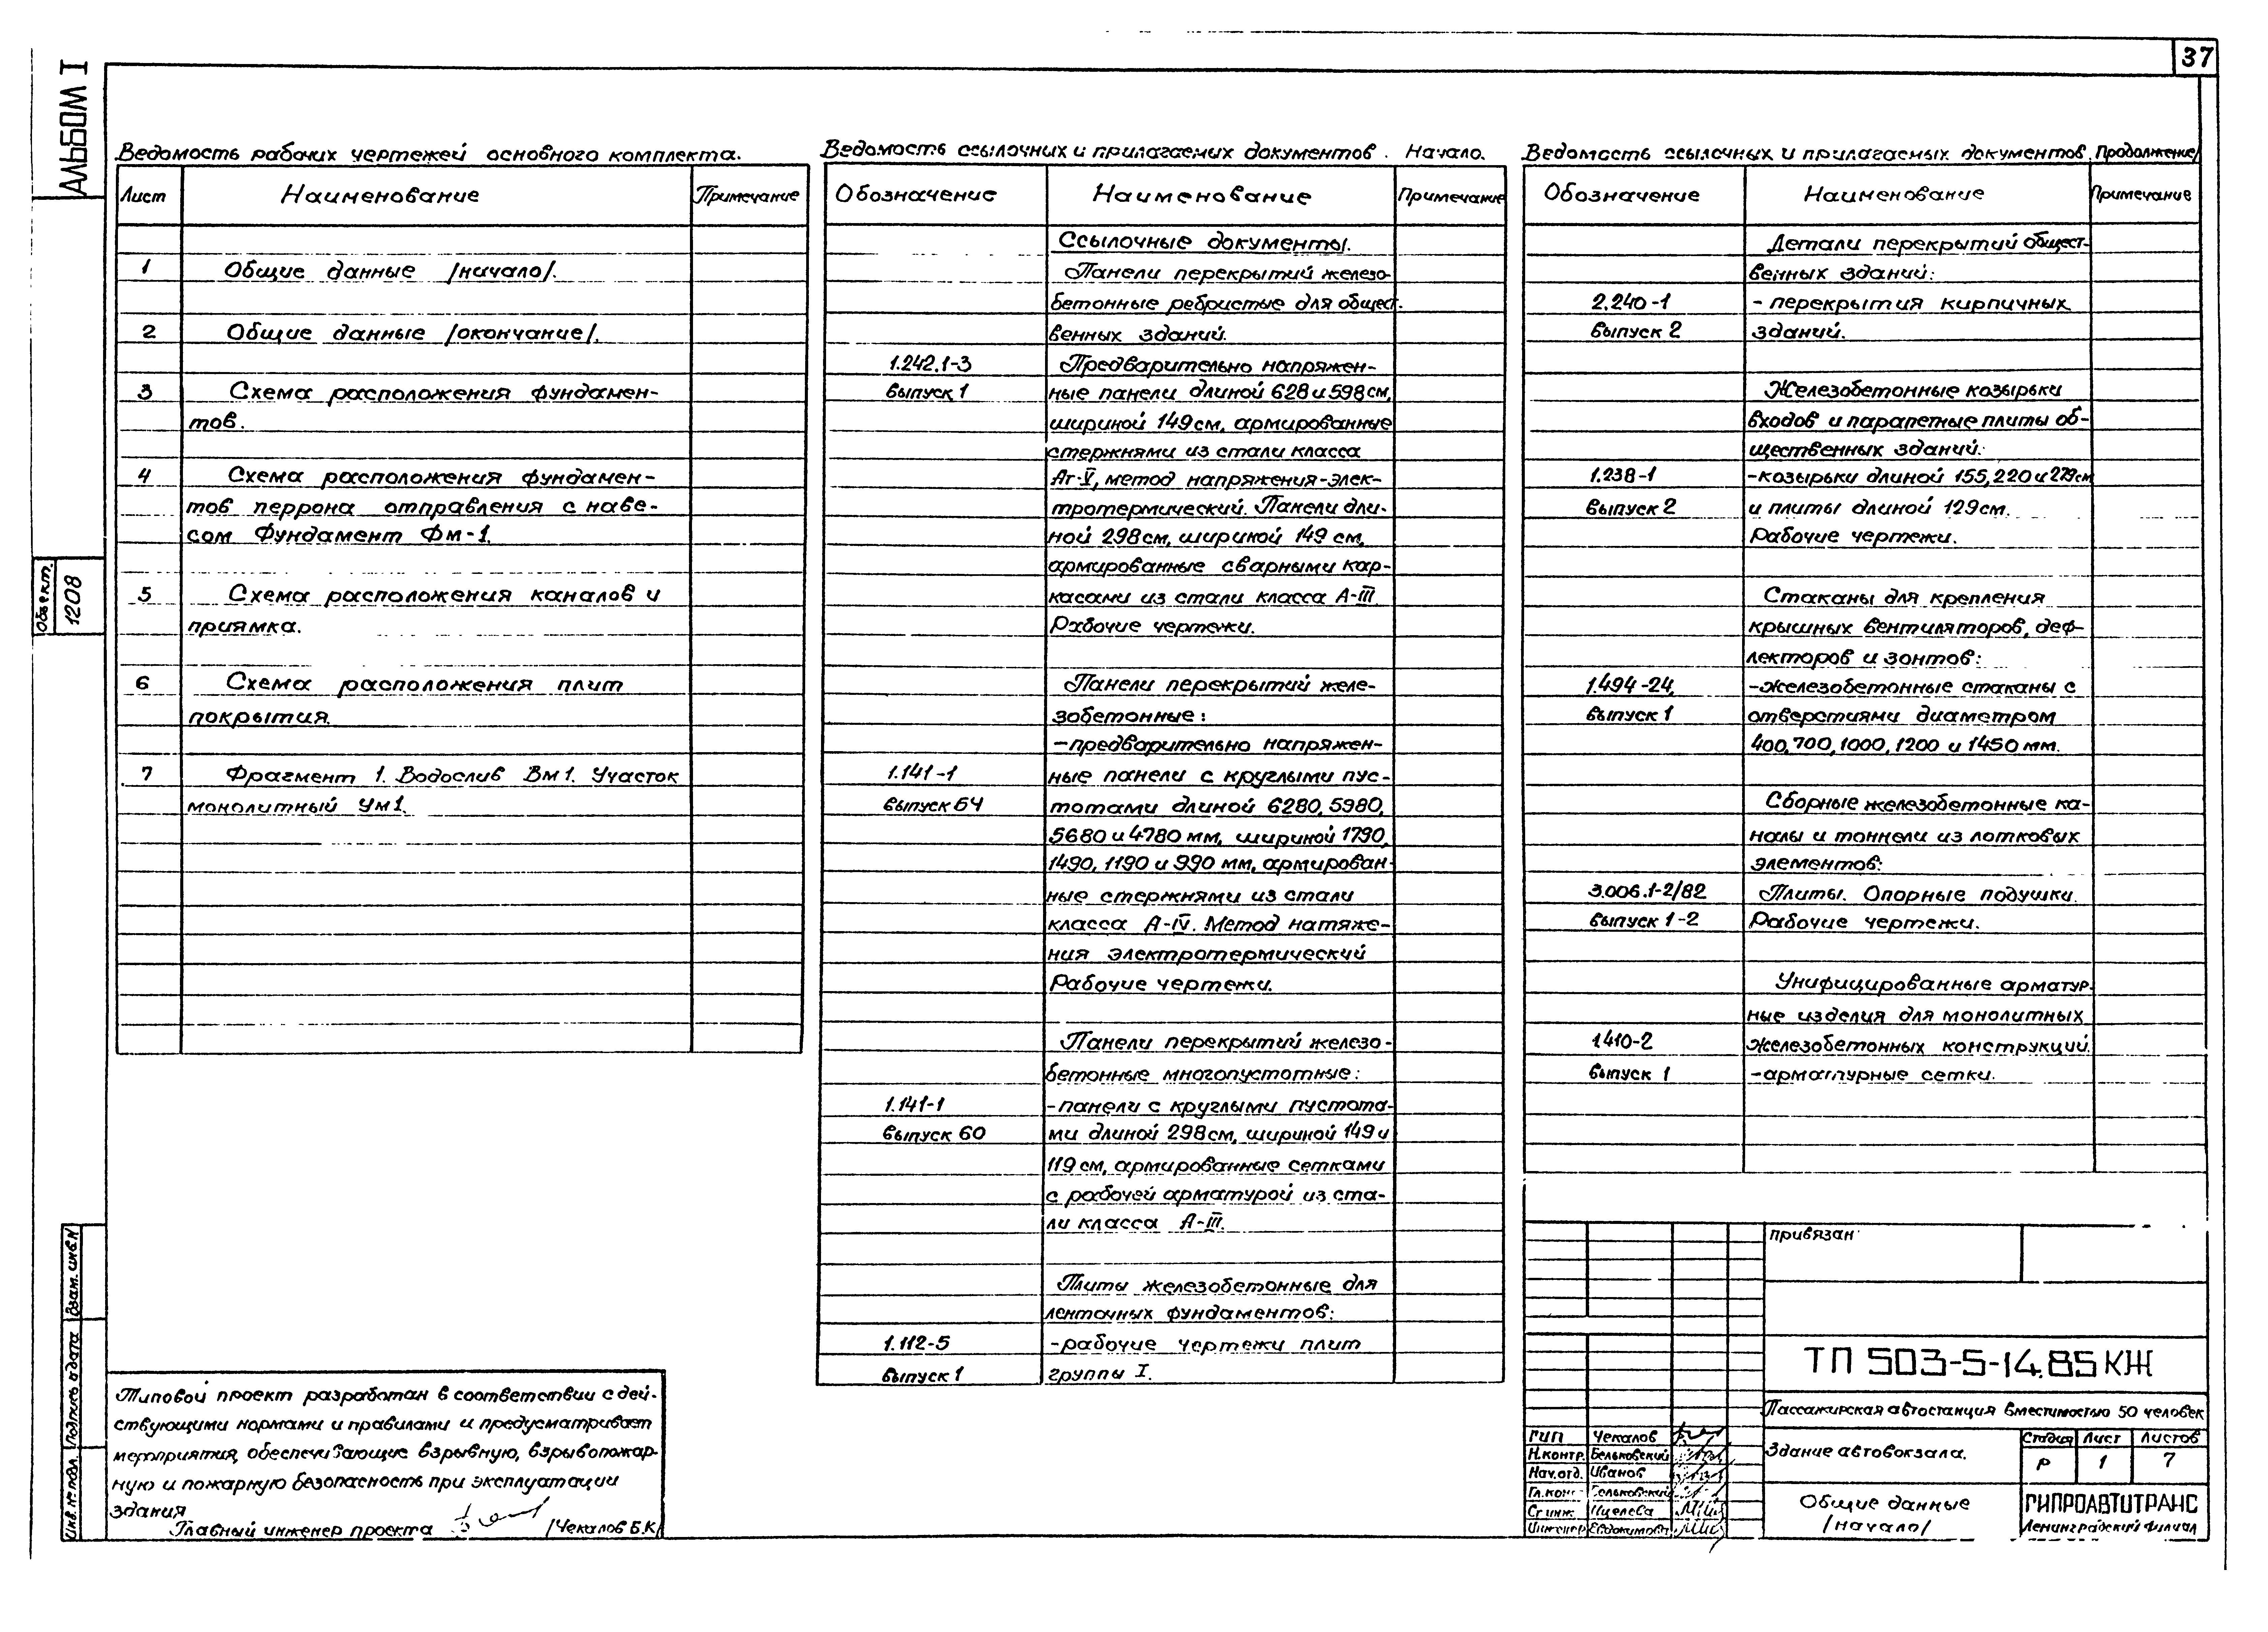 37
АЛЬБОМ I
Объект.
1208
Взам. инв.N
Подпись и дата
Инв. № подл.
Ведомость рабочих чертежей основного комплекта.
Лист Наименование Примечание
1 Общие данные /начало/.
2 Общие данные /окончание/.
3 Схема расположения фундамен-
тов.
4 Схема расположения фундамен-
тов перрона отправления с наве-
сом Фундамент Фм-1.
5 Схема расположения каналов и
приямка.
6 Схема расположения плит
покрытия.
7 Фрагмент 1. Водослив Вм1. Участок
монолитный Ум1.
Типовой проект разработан в соответствии с дей-
ствующими нормами и правилами и предусматривает
мероприятия, обеспечивающие взрывную, взрывопожар-
ную и пожарную безопасность при эксплуатации
здания
Главный инженер проекта /Чекалов Б.К/
Ведомость ссылочных и прилагаемых документов. Начало.
Обозначение Наименование Примечание
Ссылочные документы.
Панели перекрытий железо-
бетонные ребристые для общест-
венных зданий.
1.242.1-3 Предварительно напряжен-
выпуск 1 ные панели длиной 628 и 598 см,
шириной 149 см, армированные
стержнями из стали класса
Ат-V, метод напряжения-элек-
тротермический. Панели дли-
ной 298 см, шириной 149 см,
армированные сварными кар-
касами из стали класса А-III.
Рабочие чертежи.
Панели перекрытий желе-
зобетонные:
-предварительно напряжен-
1.141-1 ные панели с круглыми пус-
выпуск 64 тотами длиной 6280, 5980,
5680 и 4780 мм, шириной 1790,
1490, 1190 и 990 мм, армирован-
ные стержнями из стали
класса А-IV. Метод натяже-
ния электротермический
Рабочие чертежи.
Панели перекрытий железо-
бетонные многопустотные:
1.141-1 -панели с круглыми пустота-
выпуск 60 ми длиной 298 см, шириной 149 и
119 см, армированные сетками
с рабочей арматурой из ста-
ли класса А-III.
Плиты железобетонные для
ленточных фундаментов:
1.112-5 -рабочие чертежи плит
выпуск 1 группы I.
Ведомость ссылочных и прилагаемых документов. Продолжение/
Обозначение Наименование Примечание
Детали перекрытий общест-
венных зданий:
2.240-1 - перекрытия кирпичных
выпуск 2 зданий.
Железобетонные козырьки
входов и парапетные плиты об-
щественных зданий:
1.238-1 -козырьки длиной 155, 220 и 279 см
выпуск 2 и плиты длиной 129 см.
Рабочие чертежи.
Стаканы для крепления
крышных вентиляторов, деф-
лекторов и зонтов:
1.494-24, -железобетонные стаканы с
выпуск 1 отверстиями диаметром
400, 700, 1000, 1200 и 1450 мм.
Сборные железобетонные ка-
налы и тоннели из лотковых
элементов:
3.006.1-2/82 Плиты. Опорные подушки.
выпуск 1-2 Рабочие чертежи.
Унифицированные арматур-
ные изделия для монолитных
1.410-2 железобетонных конструкций.
выпуск 1 -арматурные сетки.
привязан
ТП 503-5-14.85 КЖ
Пассажирская автостанция вместимостью 50 человек
ГИП Чекалов
Н.контр. Бельковский
Нач.отд. Иванов
Гл.конс Бельковский
Ст.инж.
Инженер Евдокимова
Здание автовокзала.
Стадия Лист Листов
Р 1 7
Общие данные
/начало/
ГИПРОАВТОТРАНС
Ленинградский филиал